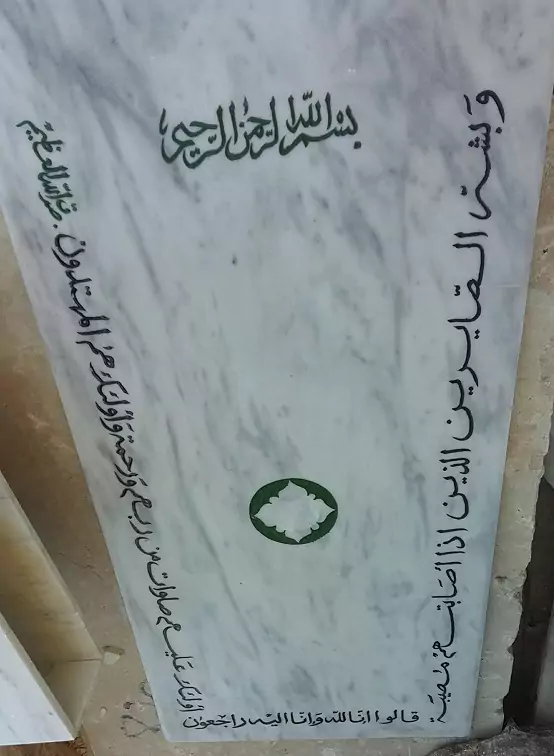 بسم الله الرحمن الرحيم
وبشر الصابرين الذين اذا أصابتهم مصيبة
قالوا انا لله وانا اليه راجعون
أولئك عليهم صلوات من ربهم ورحمة وأولئك هم المهتدون . صدق الله العظيم